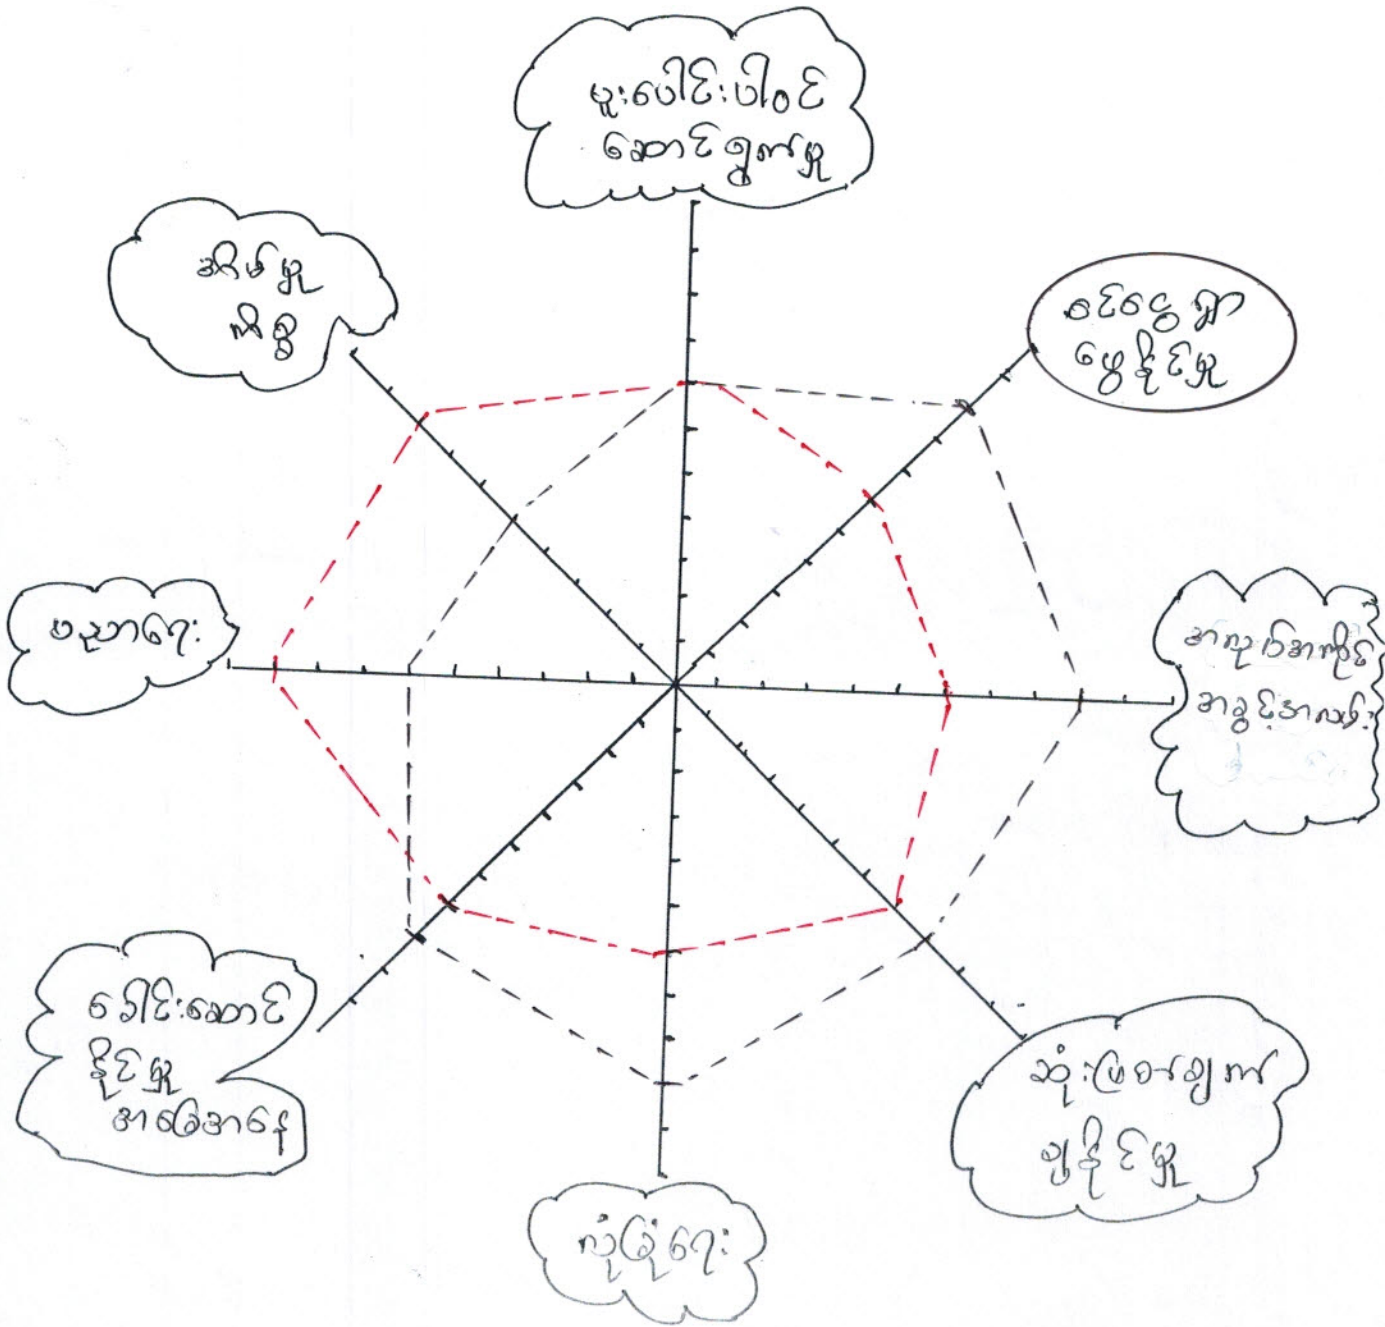 ပူးပေါင်းပါဝင်
ဆောင်ရွက်မှု
ငွေရှာ
ဖွေနိုင်မှု
အကူအညီ
အခွင့်အလမ်း
ဆုံးဖြတ်ချက်
ချနိုင်မှု
လုံခြုံရေး
ခေါင်းဆောင်
နိုင်မှု
အခြေအနေ
ပညာရေး
အိမ်မှု
ကိစ္စ